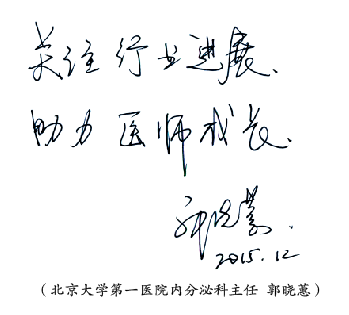 关注行业进展、
助力医师成长、
郭晓蕙.
2015.12
（北京大学第一医院内分泌科主任 郭晓蕙）